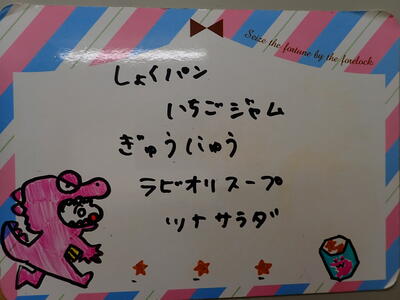 Seize the fortune by the forelock
しょくパン
いちごジャム
ぎゅうにゅう
ラビオリスープ
ツナサラダ